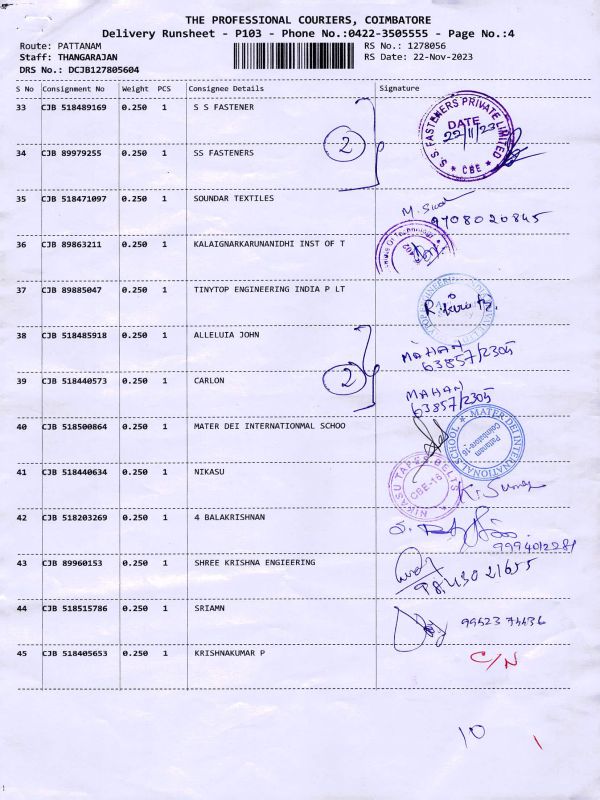 THE PROFESSIONAL COURIERS, COIMBATORE
Delivery Runsheet - P103 - Phone No.:0422-3505555 - Page No.:4
Route: PATTANAM RS No.: 1278056
Staff: THANGARAJAN RS Date: 22-Nov-2023
DRS No.: DCJB127805604
S No Consignment No Weight PCS Consignee Details Signature
33 CJB 518489169 0.250 1 S S FASTENER
S. S. FASTENERS PRIVATE LIMITED
DATE
22/11/23
* CBE *
2
34 CJB 89979255 0.250 1 SS FASTENERS
35 CJB 518471097 0.250 1 SOUNDAR TEXTILES
9708020845
36 CJB 89863211 0.250 1 KALAIGNARKARUNANIDHI INST OF T
37 CJB 89885047 0.250 1 TINYTOP ENGINEERING INDIA P LT
38 CJB 518485918 0.250 1 ALLELUIA JOHN
MAHAN
63857/2305
2
39 CJB 518440573 0.250 1 CARLON
MAHAN
63857/2305
40 CJB 518500864 0.250 1 MATER DEI INTERNATIONMAL SCHOO
MATER DEI INTERNATIONAL SCHOOL
Pattanam
Coimbatore-16
41 CJB 518440634 0.250 1 NIKASU
NIKASU TAPES BELTS
CBE-16
42 CJB 518203269 0.250 1 4 BALAKRISHNAN
9994012281
43 CJB 89960153 0.250 1 SHREE KRISHNA ENGIEERING
98430 21655
44 CJB 518515786 0.250 1 SRIAMN
45 CJB 518405653 0.250 1 KRISHNAKUMAR P
C/N
10
1